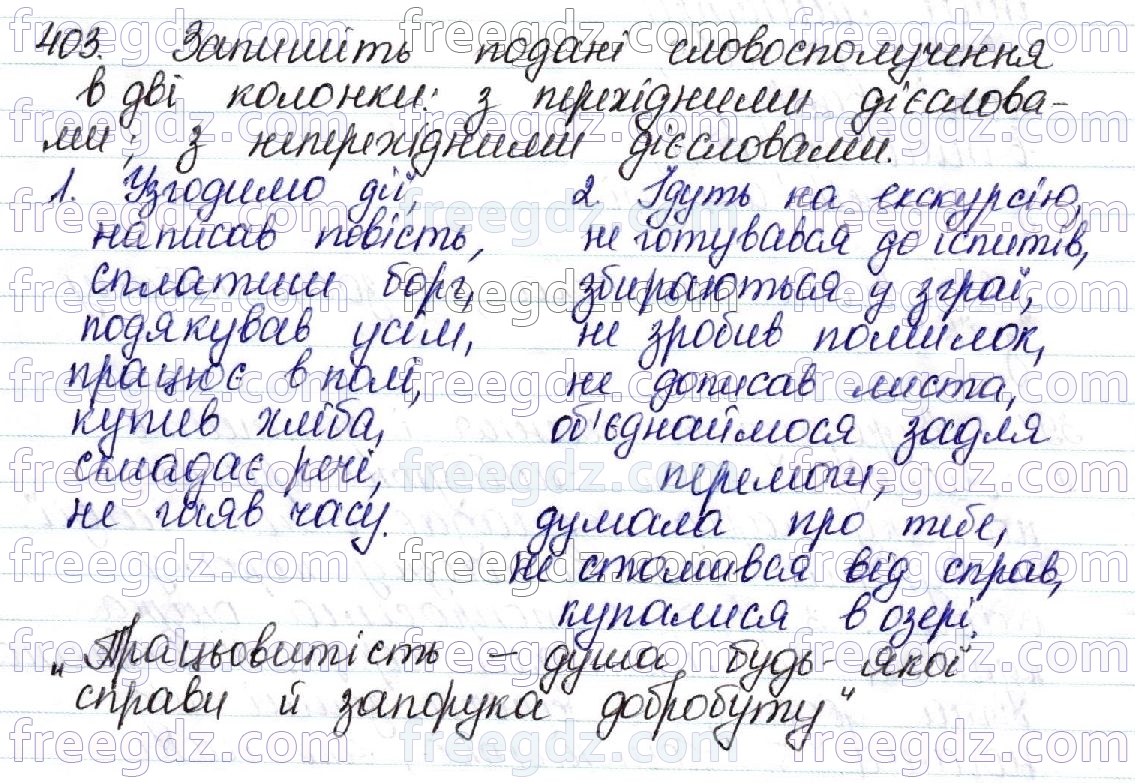 403. Запишіть подані словосполучення
в дві колонки: з перехідними дієслова-
ми; з неперехідними дієсловами.
1. Узгодимо дії,
написав повість,
сплатиш борг,
подякував усім,
працює в полі,
купив хліба,
складає речі,
не гаяв часу.
2. Ідуть на екскурсію,
не готувався до іспитів,
збираються у зграї,
не зробив помилок,
не дописав листа,
об'єднаймося задля
перемоги,
думала про тебе,
не стомився від справ,
купалися в озері.
"Працьовитість – душа будь-якої
справи й запорука добробуту"
freegdz.com